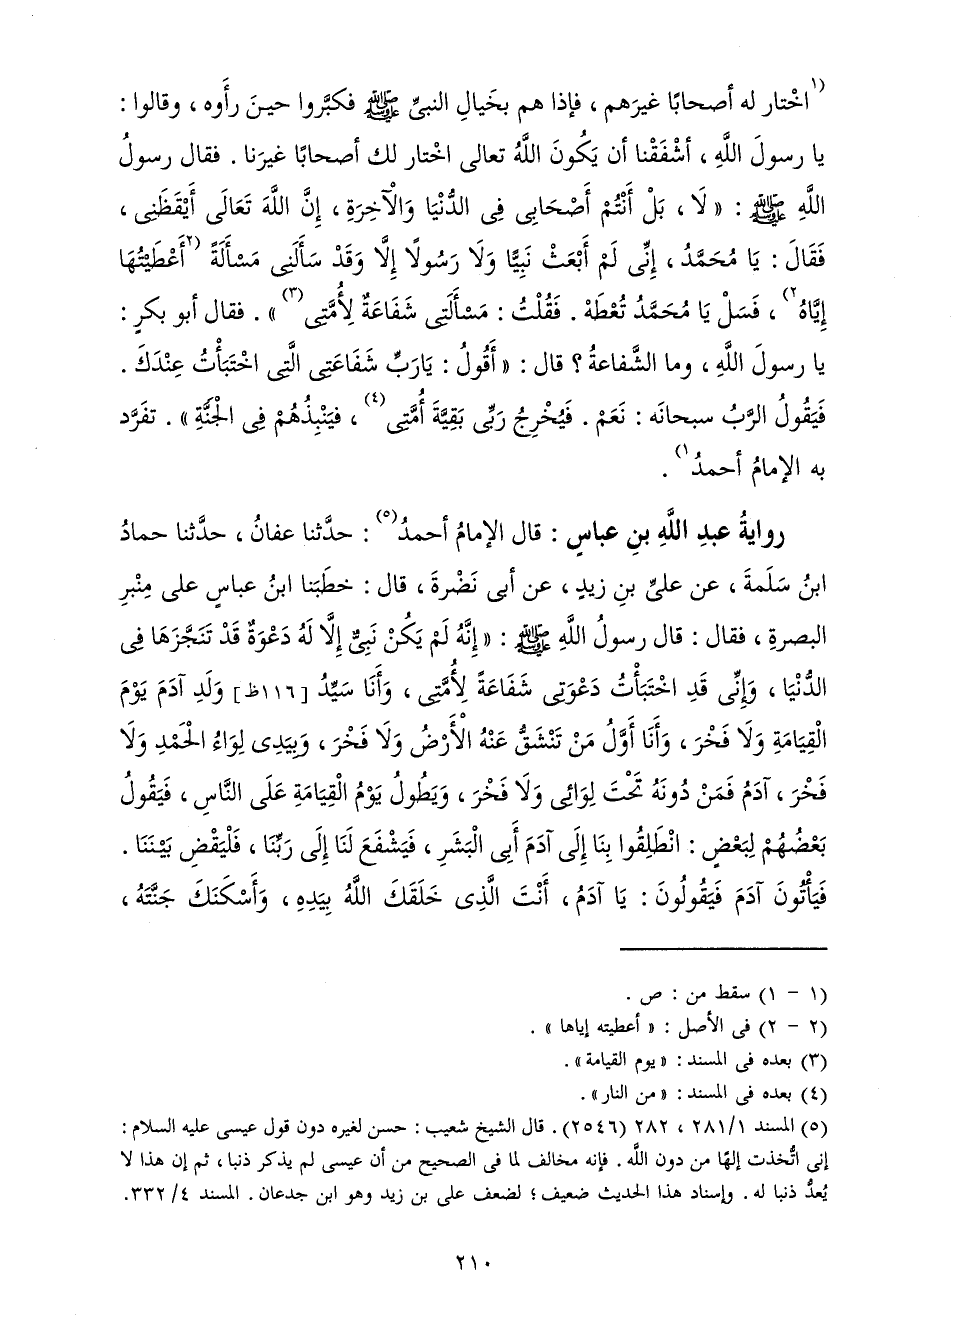 (١اخْتار له أصحابًا غيرَهم ، فإذا هم بخَيالِ النبىِّ ﷺ فكبَّروا حينَ رأَوه ، وقالوا :
يا رسولَ اللَّهِ ، أشْفَقْنا أن يَكُونَ اللَّهُ تعالى اختار لك أصحابًا غيرَنا . فقال رسولُ
اللَّهِ ﷺ : « لَا ، بَلْ أَنْتُمْ أَصْحَابِى فِى الدُّنْيَا وَالْآخِرَةِ ، إِنَّ اللَّهَ تَعَالَى أَيْقَظَنِى ،
فَقَالَ : يَا مُحَمَّدُ ، إِنِّى لَمْ أَبْعَثْ نَبِيًّا وَلَا رَسُولًا إِلَّا وَقَدْ سَأَلَنِى مَسْأَلَةً (٢أَعْطَيْتُهَا
إِيَّاهُ٢) ، فَسَلْ يَا مُحَمَّدُ تُعْطَهْ . فَقُلْتُ : مَسْأَلَتِى شَفَاعَةٌ لِأُمَّتِى(٣) » . فقال أبو بكرٍ :
يا رسولَ اللَّهِ ، وما الشَّفاعةُ ؟ قال : « أَقُولُ : يَارَبِّ شَفَاعَتِى الَّتِى اخْتَبَأْتُ عِنْدَكَ .
فَيَقُولُ الرَّبُّ سبحانَه : نَعَمْ . فَيُخْرِجُ رَبِّى بَقِيَّةَ أُمَّتِى(٤) ، فَيَنْبِذُهُمْ فِى الْجَنَّةِ » . تفَرَّد
به الإمامُ أحمدُ١) .
روايةُ عبدِ اللَّهِ بنِ عباسٍ : قال الإمامُ أحمدُ(٥) : حدَّثنا عفانُ ، حدَّثنا حمادُ
ابنُ سَلَمةَ ، عن علىِّ بنِ زيدٍ ، عن أبى نَضْرةَ ، قال : خطَبَنا ابنُ عباسٍ على مِنْبرِ
البصرةِ ، فقال : قال رسولُ اللَّهِ ﷺ : « إِنَّهُ لَمْ يَكُنْ نَبِىٌّ إِلَّا لَهُ دَعْوَةٌ قَدْ تَنَجَّزَهَا فِى
الدُّنْيَا ، وَإِنِّى قَدِ اخْتَبَأْتُ دَعْوَتِى شَفَاعَةً لِأُمَّتِى ، وَأَنَا سَيِّدُ [١١٦ظ] وَلَدِ آدَمَ يَوْمَ
الْقِيَامَةِ وَلَا فَخْرَ ، وَأَنَا أَوَّلُ مَنْ تَنْشَقُّ عَنْهُ الْأَرْضُ وَلَا فَخْرَ ، وَبِيَدِى لِوَاءُ الْحَمْدِ وَلَا
فَخْرَ ، آدَمُ فَمَنْ دُونَهُ تَحْتَ لِوَائِى وَلَا فَخْرَ ، وَيَطُولُ يَوْمُ الْقِيَامَةِ عَلَى النَّاسِ ، فَيَقُولُ
بَعْضُهُمْ لِبَعْضٍ : انْطَلِقُوا بِنَا إِلَى آدَمَ أَبِى الْبَشَرِ ، فَيَشْفَعَ لَنَا إِلَى رَبِّنَا ، فَلْيَقْضِ بَيْنَنَا .
فَيَأْتُونَ آدَمَ فَيَقُولُونَ : يَا آدَمُ ، أَنْتَ الَّذِى خَلَقَكَ اللَّهُ بِيَدِهِ ، وَأَسْكَنَكَ جَنَّتَهُ ،
(١ - ١) سقط من : ص .
(٢ - ٢) فى الأصل : « أعطيته إياها » .
(٣) بعده فى المسند : « يوم القيامة » .
(٤) بعده فى المسند : « من النار » .
(٥) المسند ٢٨١/١ ، ٢٨٢ (٢٥٤٦) . قال الشيخ شعيب : حسن لغيره دون قول عيسى عليه السلام :
إنى اتُّخذت إلهًا من دون اللَّه . فإنه مخالف لما فى الصحيح من أن عيسى لم يذكر ذنبا ، ثم إن هذا لا
يُعدُّ ذنبا له . وإسناد هذا الحديث ضعيف ؛ لضعف على بن زيد وهو ابن جدعان . المسند ٣٣٢/٤ .
٢١٠